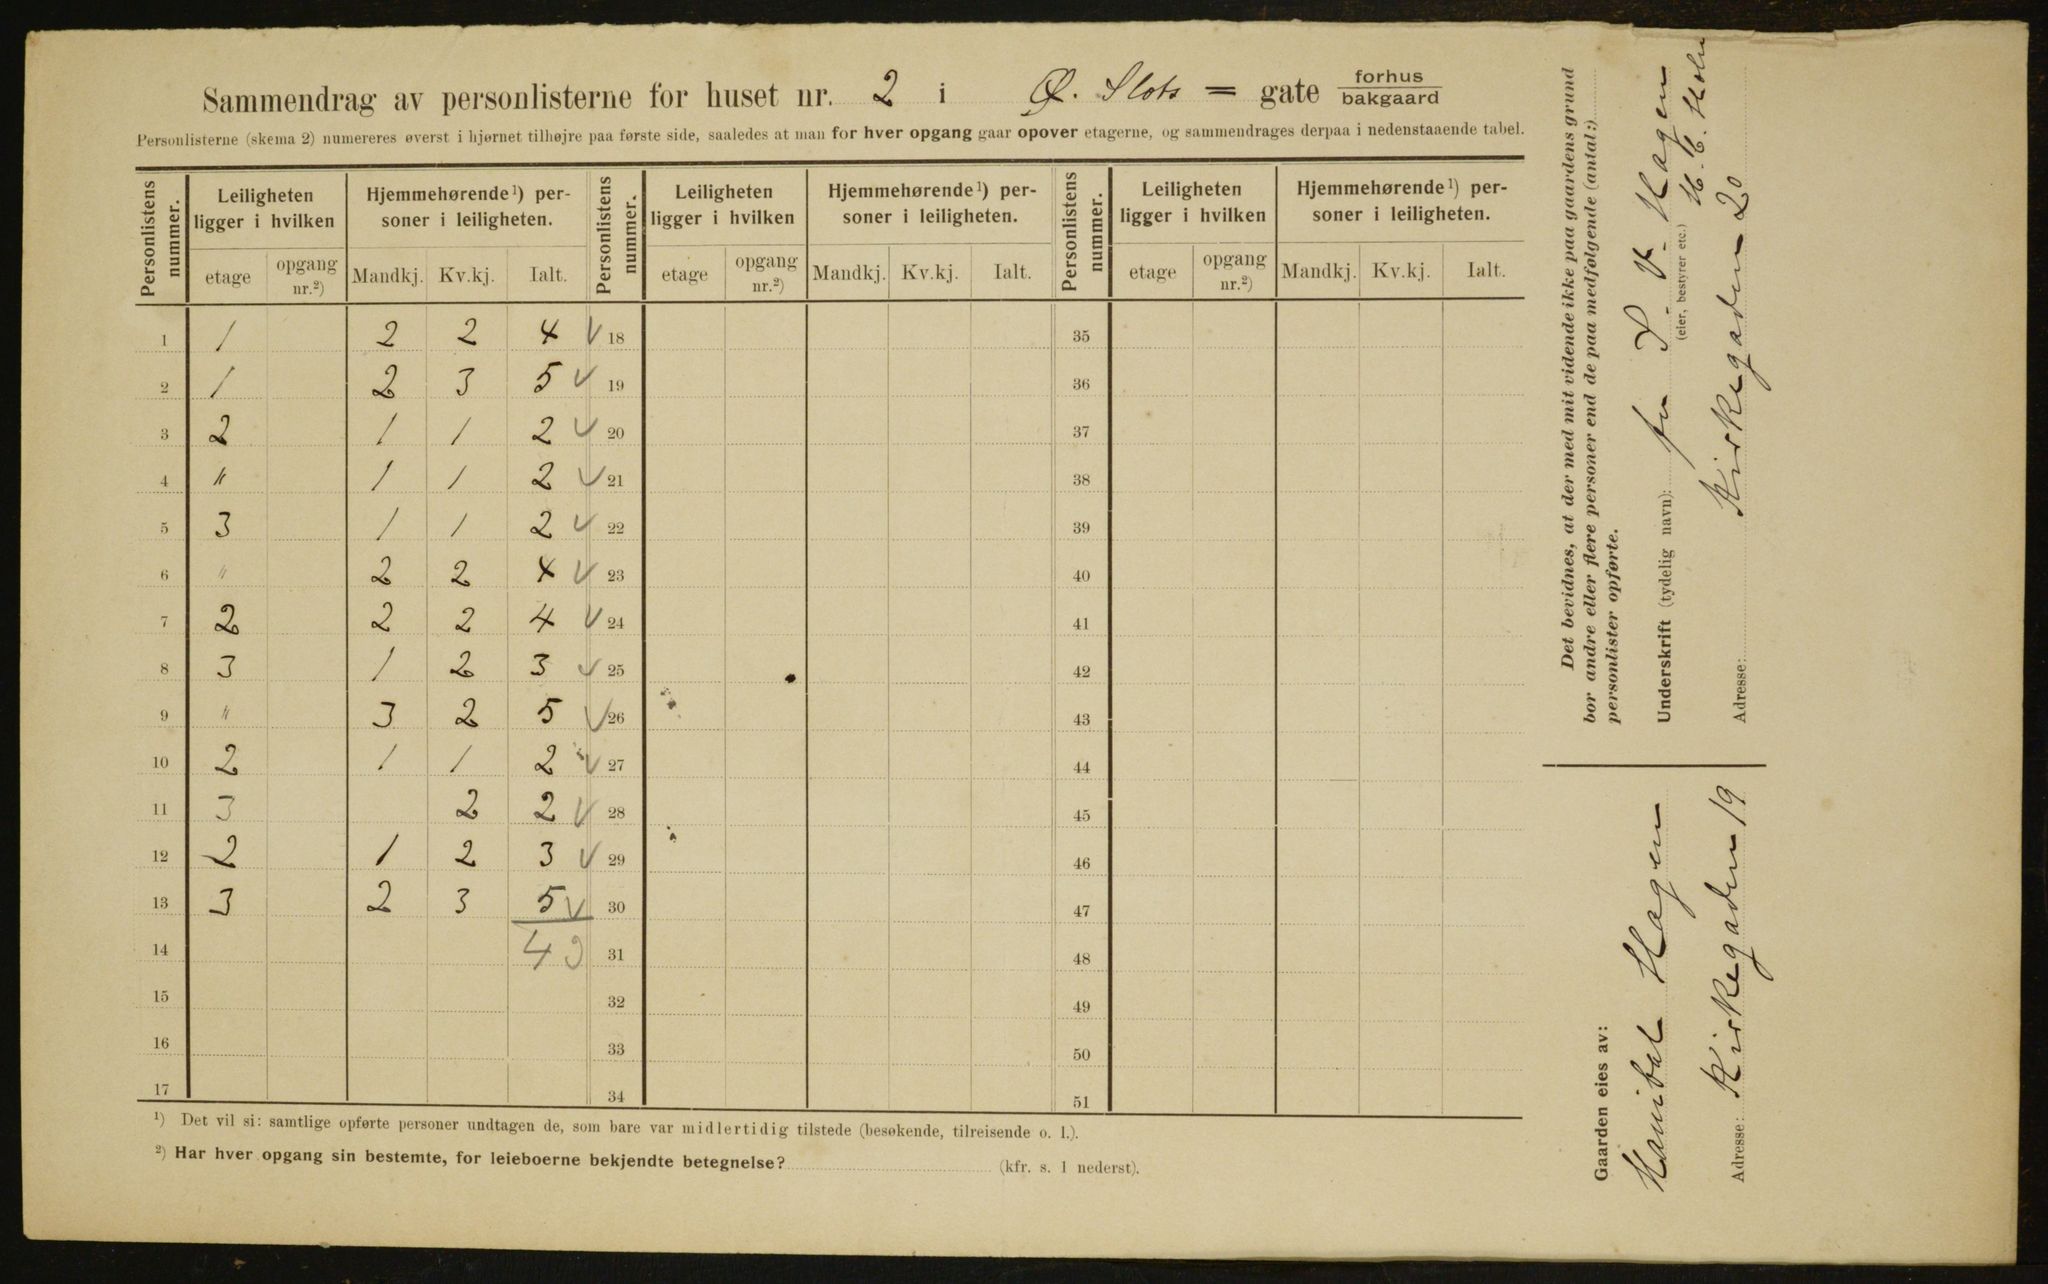 Sammendrag av personlisterne for huset nr. 2 i Ø. Slots = gate forhus
bakgaard
Personlisterne (skema 2) numereres øverst i hjørnet tilhøjre paa første side, saaledes at man for hver opgang gaar opover etagerne, og sammendrages derpaa i nedenstaaende tabel.
Personlistens nummer. Leiligheten ligger i hvilken Hjemmehørende ¹) personer i leiligheten. Personlistens nummer. Leiligheten ligger i hvilken Hjemmehørende ¹) personer i leiligheten. Personlistens nummer. Leiligheten ligger i hvilken Hjemmehørende ¹) personer i leiligheten.
etage opgang nr.²) Mandkj. Kv.kj. Ialt. etage opgang nr.²) Mandkj. Kv.kj. Ialt. etage opgang nr.²) Mandkj. Kv.kj. Ialt.
1 1 2 2 4 18 35
2 1 2 3 5 19 36
3 2 1 1 2 20 37
4 " 1 1 2 21 38
5 3 1 1 2 22 39
6 " 2 2 4 23 40
7 2 2 2 4 24 41
8 3 1 2 3 25 42
9 " 3 2 5 26 43
10 2 1 1 2 27 44
11 3 2 2 28 45
12 2 1 2 3 29 46
13 3 2 3 5 30 47
14 43 31 48
15 32 49
16 33 50
17 34 51
¹) Det vil si: samtlige opførte personer undtagen de, som bare var midlertidig tilstede (besøkende, tilreisende o. l.).
²) Har hver opgang sin bestemte, for leieboerne bekjendte betegnelse? (kfr. s. 1 nederst).
Det bevidnes, at der med mit vidende ikke paa gaardens grund
bor andre eller flere personer end de paa medfølgende (antal:)
personlister opførte.
Underskrift (tydelig navn): H. Hagen
(eier, bestyrer etc.) H. C. Holm
Adresse: Kirkegaden 20
Gaarden eies av:
Hanibal Hagen
Adresse: Kirkegaden 19